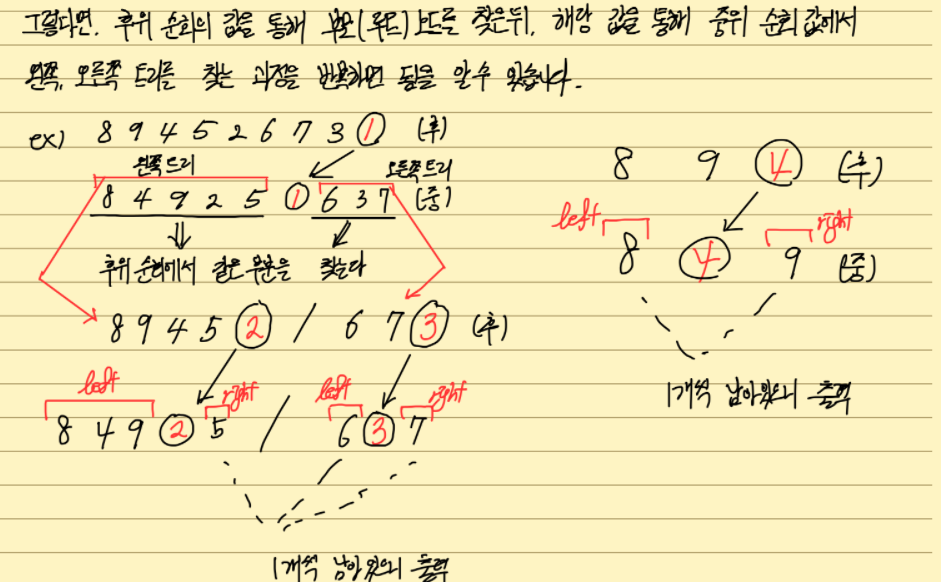 그렇다면, 후위 순회의 값을 통해 부모(루트)노드를 찾은뒤, 해당 값을 통해 중위 순회 값에서
왼쪽, 오른쪽 트리를 찾는 과정을 반복하면 됨을 알 수 있습니다.
ex) 8 9 4 5 2 6 7 3 1 (후)
왼쪽트리 오른쪽트리
8 4 9 2 5 1 6 3 7 (중)
후위 순회에서 같은 부분을 찾는다
8 9 4 5 2 / 6 7 3 (후)
left right left right
8 4 9 2 5 / 6 3 7
1개씩 남아있으니 출력
8 9 4 (후)
left right
8 4 9 (중)
1개씩 남아있으니 출력